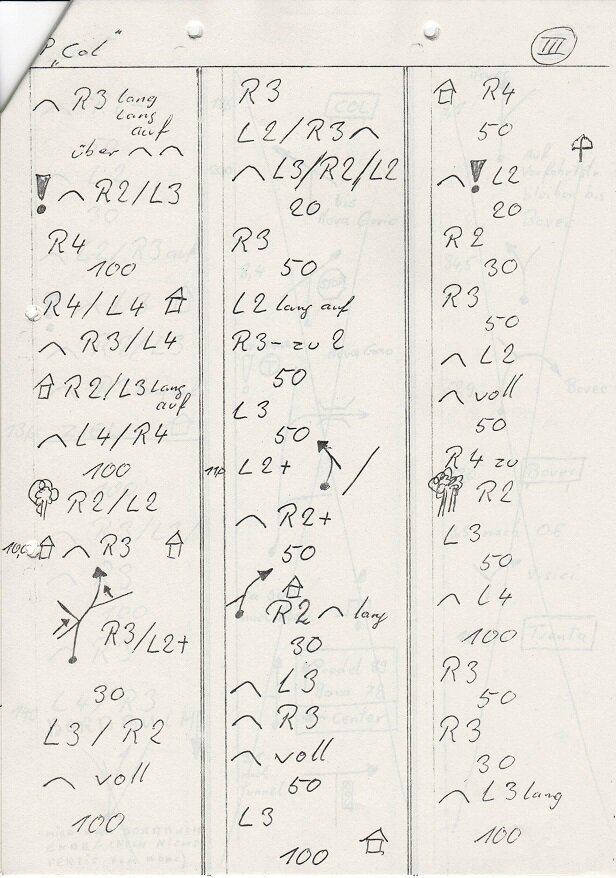 „Col"
III
R3 lang
lang
auf
über
! R2/L3
R4
100
R4/L4
R3/L4
R2/L3 lang
auf
L4/R4
100
R2/L2
R3
R3/L2+
30
L3/R2
voll
100
R3
L2/R3
L3/R2/L2
20
R3
50
L2 lang auf
R3-zu 2
50
L3
50
L2+ /
R2+
50
R2 lang
30
L3
R3
voll
50
L3
100
R4
50
! L2
20
R2
30
R3
50
L2
voll
50
R4 zu
R2
L3
50
L4
100
R3
50
R3
30
L3 lang
100